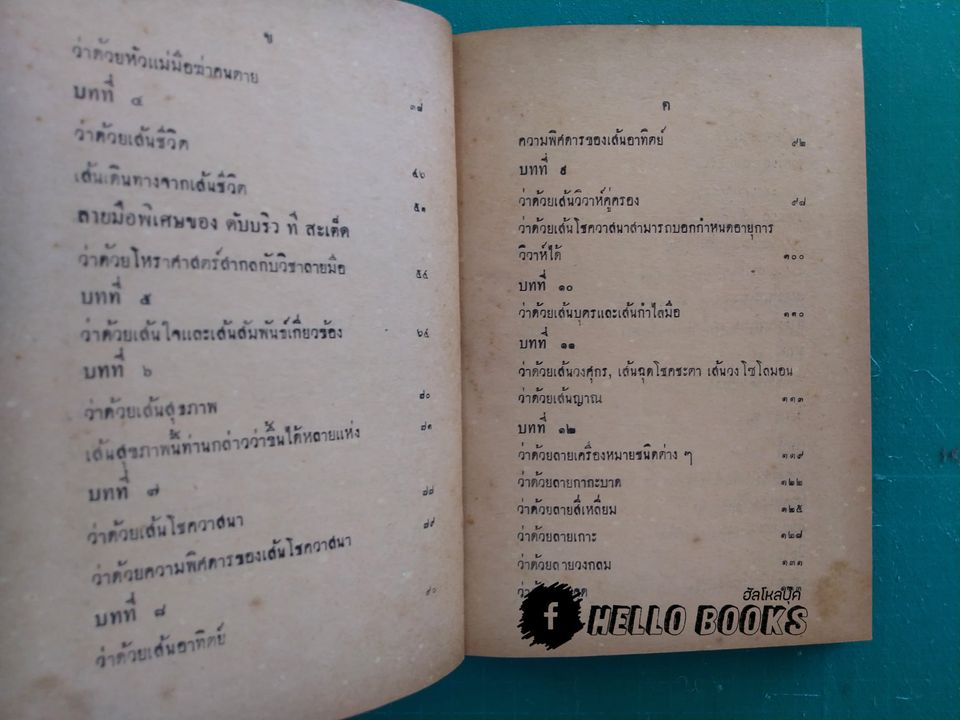 ข
ว่าด้วยหัวแม่มือฆ่าคนตาย
บทที่ ๔
ว่าด้วยเส้นชีวิต ๓๘
เส้นเดินทางจากเส้นชีวิต ๔๖
ลายมือพิเศษของ ดับบริว ที สะเต็ด ๕๑
ว่าด้วยโหราศาสตร์สากลกับวิชาลายมือ ๕๔
บทที่ ๕
ว่าด้วยเส้นใจและเส้นสัมพันธ์เกี่ยวข้อง ๖๔
บทที่ ๖
ว่าด้วยเส้นสุขภาพ ๘๐
เส้นสุขภาพนี้ท่านกล่าวว่าขึ้นได้หลายแห่ง ๘๑
บทที่ ๗
ว่าด้วยเส้นโชควาสนา ๘๘
ว่าด้วยความพิศดารของเส้นโชควาสนา ๘๙
บทที่ ๘
ว่าด้วยเส้นอาทิตย์ ๙๐
ค
ความพิศดารของเส้นอาทิตย์ ๙๒
บทที่ ๙
ว่าด้วยเส้นวิวาห์คู่ครอง ๙๘
ว่าด้วยเส้นโชควาสนาสามารถบอกกำหนดอายุการ
วิวาห์ได้ ๑๐๐
บทที่ ๑๐
ว่าด้วยเส้นบุตรและเส้นกำไลมือ ๑๑๐
บทที่ ๑๑
ว่าด้วยเส้นวงศุกร, เส้นฉุดโชคชะตา เส้นวงโซโลมอน
ว่าด้วยเส้นญาณ ๑๑๓
บทที่ ๑๒
ว่าด้วยลายเครื่องหมายชนิดต่าง ๆ ๑๑๙
ว่าด้วยลายกากะบาด ๑๒๒
ว่าด้วยลายสี่เหลี่ยม ๑๒๕
ว่าด้วยลายเกาะ ๑๒๘
ว่าด้วยลายวงกลม ๑๓๑
ฮัลโหลบุ๊ค
f HELLO BOOKS